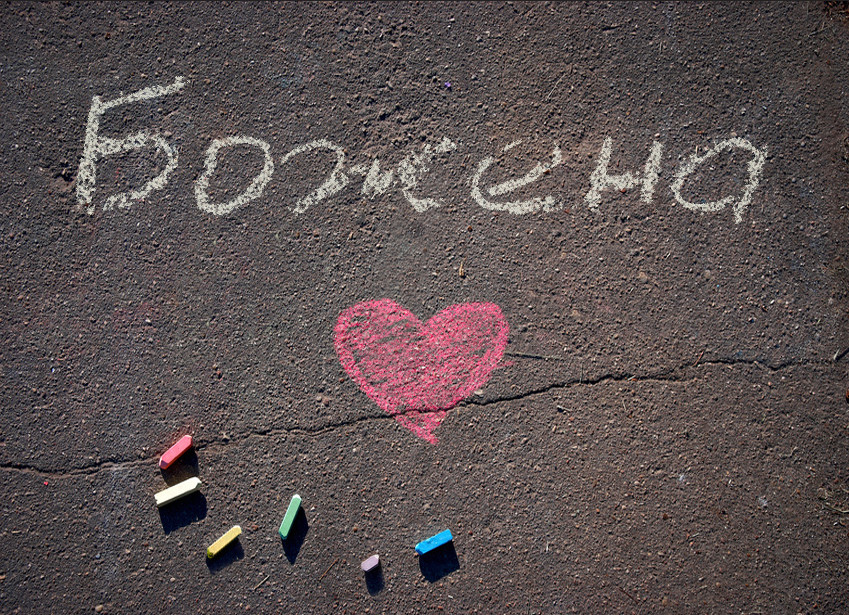 Божена